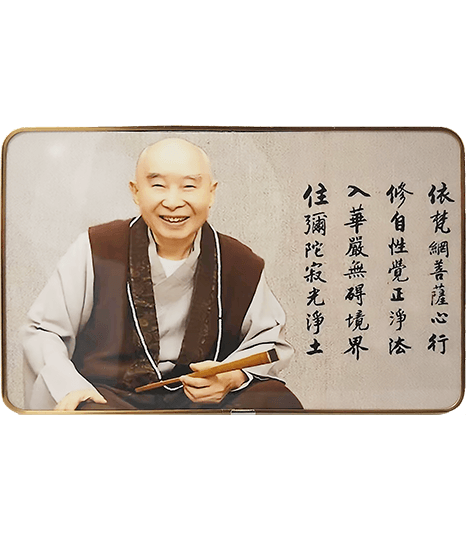 依梵網菩薩心行
修自性覺正淨法
入華嚴無碍境界
住彌陀寂光淨土